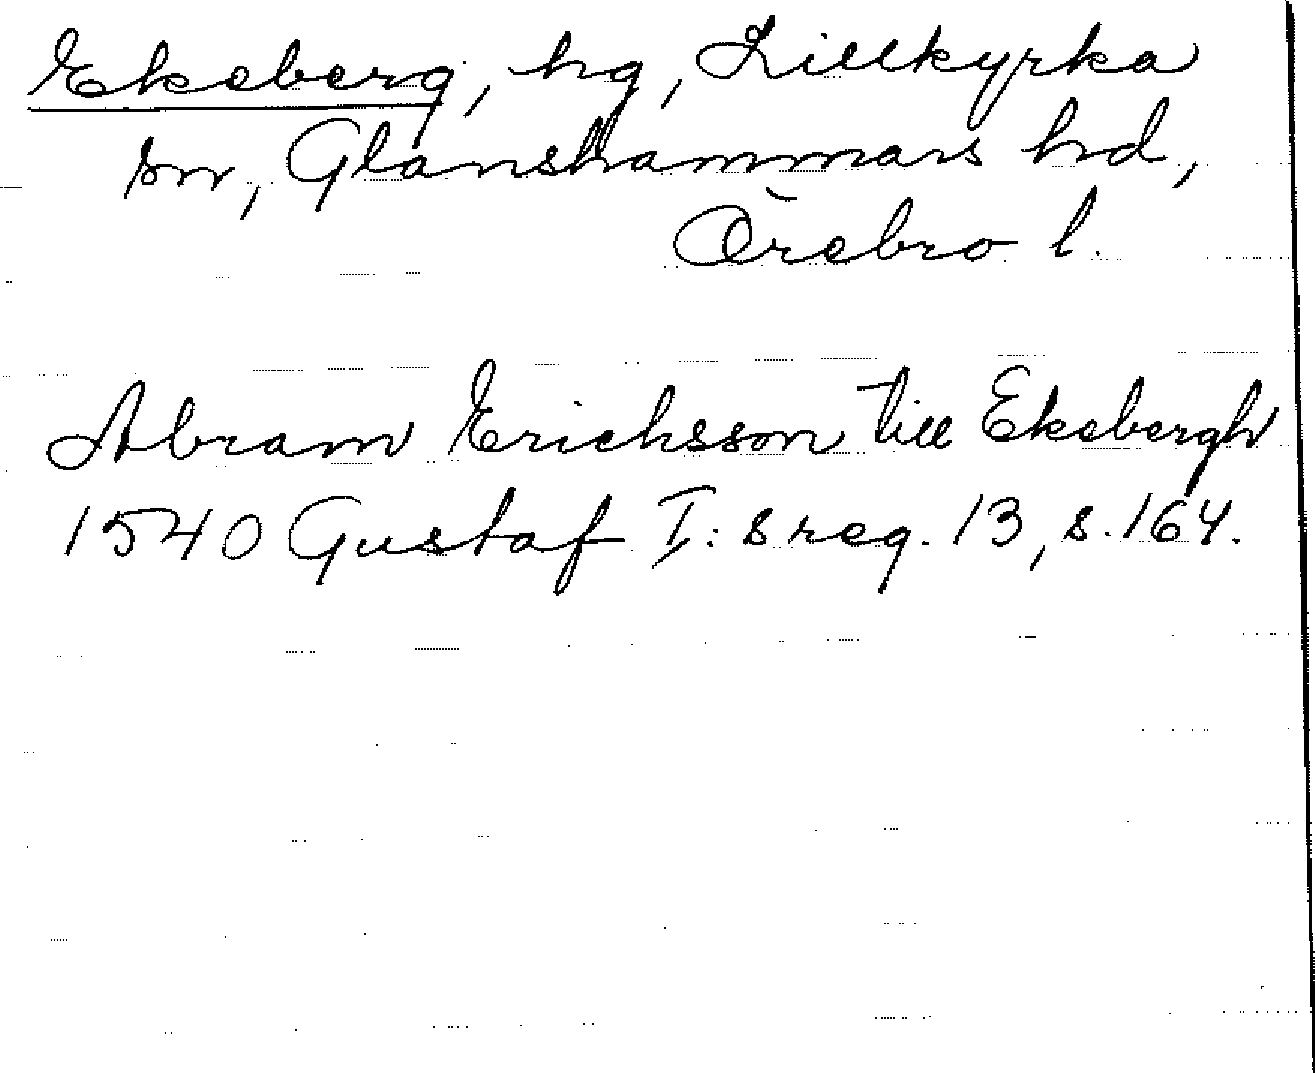 Ekeberg, hg, Lillkyrka
sn, Glanshammars hd,
Örebro l.
Abram Erichsson till Ekebergh
1540 Gustaf I:s reg. 13, s. 164.